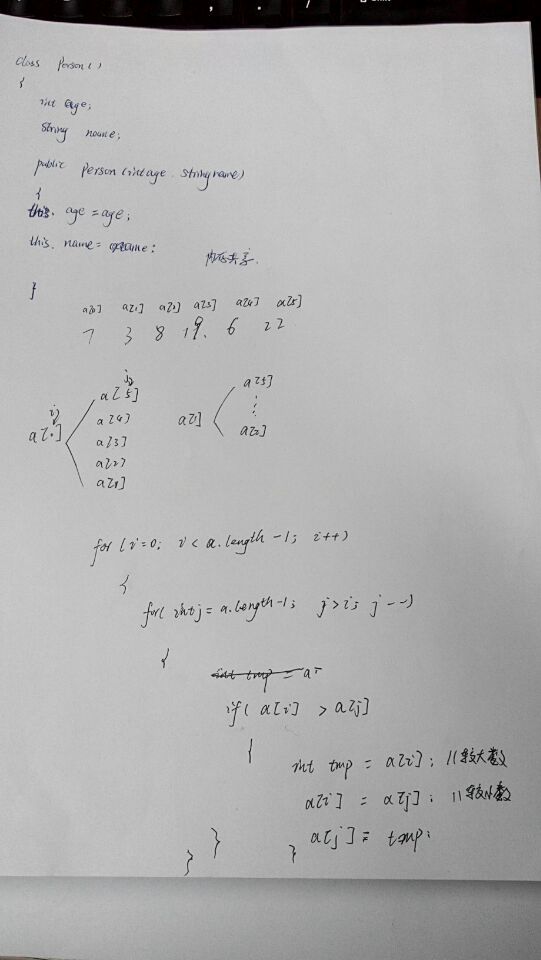 class Person()
{
int age;
String name;
public Person(int age. string name)
{
this. age = age;
this. name= name:
内存共享.
}
a[0] a[1] a[2] a[3] a[4] a[5]
7 3 8 19. 6 22
j
a[5]
a[5]
i
a[4]
a[0]
a[1]
a[3]
a[2]
a[2]
a[1]
for (i=0; i < a.length -1; i++)
{
for( int j = a.length-1; j>i; j--)
{
int tmp = a
if( a[i] > a[j]
{
int tmp = a[i]; //较大数
a[i] = a[j]; //较小数
a[j] = tmp;
}
}
}